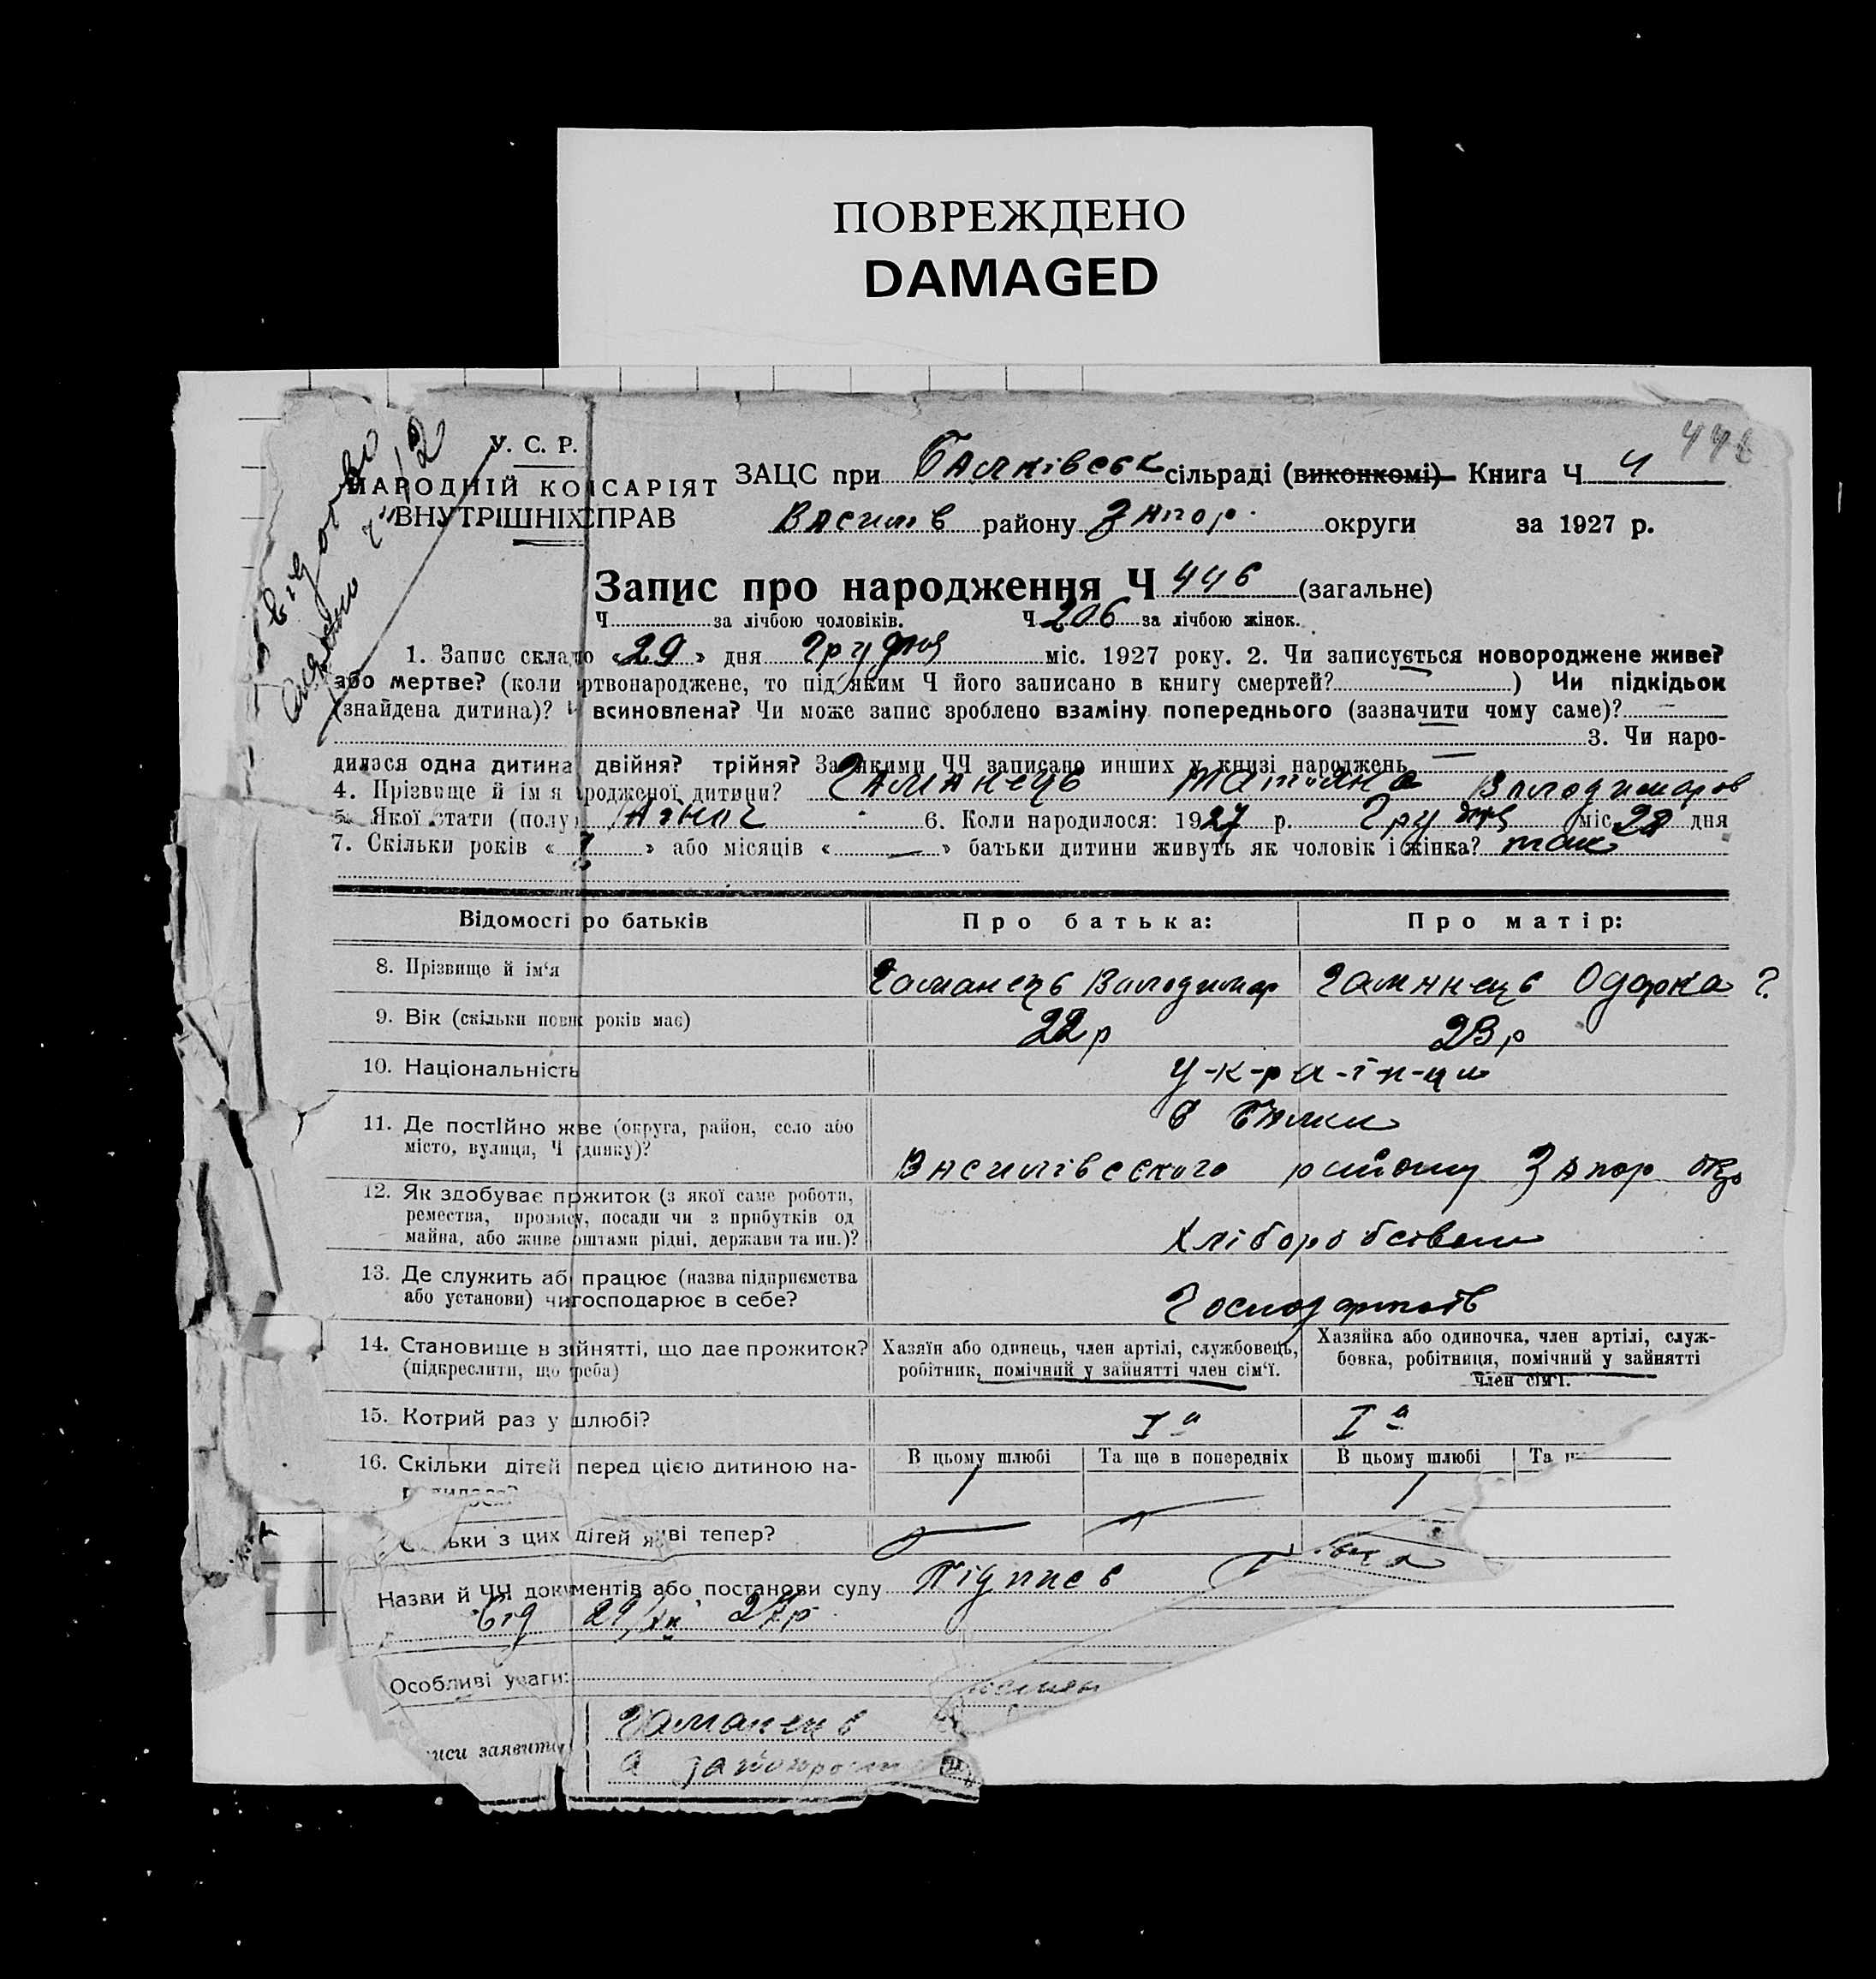 ПОВРЕЖДЕНО
DAMAGED
446
У. С. Р.
НАРОДНІЙ КОМІСАРІЯТ
ВНУТРІШНІХ СПРАВ
ЗАЦС при Балківськ сільраді (виконкомі) Книга Ч 4
Василів району Запор. округи за 1927 р.
Запис про народження Ч 446 (загальне)
Ч за лічбою чоловіків. Ч 206 за лічбою жінок.
1. Запис складено «29» дня Грудня міс. 1927 року. 2. Чи записується новороджене живе?
або мертве? (коли мертвонароджене, то під яким Ч його записано в книгу смертей? ) Чи підкідьок
(знайдена дитина)? всиновлена? Чи може запис зроблено взаміну попереднього (зазначити чому саме)? —
3. Чи наро-
дилася одна дитина двійня? трійня? За якими ЧЧ записано инших у книзі народжень —
4. Прізвище й ім'я народженої дитини? Гаманець Татьяна Володимиров
5. Якої стати (полу) 6. Коли народилося: 1927 р. Грудня міс. 28 дня
7. Скільки років « » або місяців « — » батьки дитини живуть як чоловік і жінка? так
Відомості про батьків
Про батька:
Про матір:
8. Прізвище й ім'я Гаманець Володимир Гаманець Одарка Г.
9. Вік (скільки повних років має) 22 р 23 р
10. Національність У-к-р-а-ї-н-ци
11. Де постійно живе (округа, район, село або
місто, вулиця, Ч будинку)?
в Балки
Василівського району Запор окр
12. Як здобуває прожиток (з якої саме роботи,
ремества, промису, посади чи з прибутків од
майна, або живе коштами рідні, держави та ин.)?
Хліборобством
13. Де служить або працює (назва підприємства
або установи) чи господарює в себе?
14. Становище в зайнятті, що дає прожиток?
(підкреслити, що треба)
Хазяїн або одинець, член артілі, службовець,
робітник, помічний у зайнятті член сім'ї.
Хазяйка або одиночка, член артілі, служ-
бовка, робітниця, помічний у зайнятті
член сім'ї.
15. Котрий раз у шлюбі? Iа Iа
16. Скільки дітей перед цією дитиною на-
родилося?
В цьому шлюбі Та ще в попередніх В цьому шлюбі Та
1 1
ьки з цих дітей живі тепер?
Назви й ЧЧ документів або постанови суду Підписів
від 29/XII 27р
Особливі уваги:
иси заявитy
Гаманець